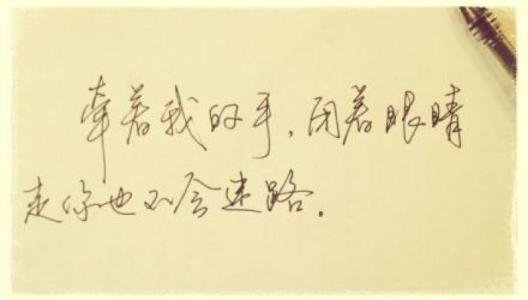 牵着我的手，闭着眼睛
走你也不会迷路．